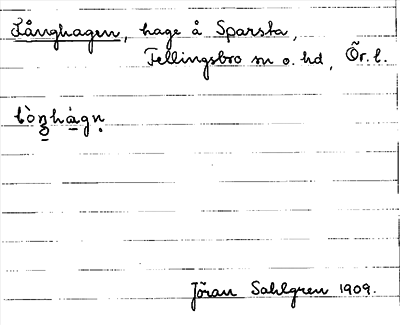 Långhagen, hage å Sparsta,
Fellingsbro sn o. hd, Ör. l.
lòŋhàgn̥
Jöran Sahlgren 1909.